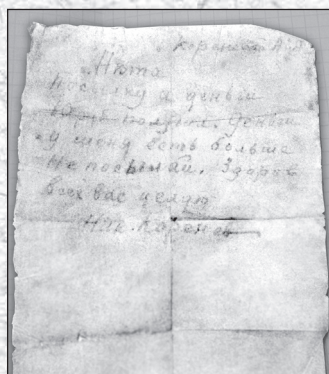 Нюта
Посылку и деньги
получил. Деньги
у меня есть больше
не посылай. Здоров
всех вас целую
Ник. Коренев